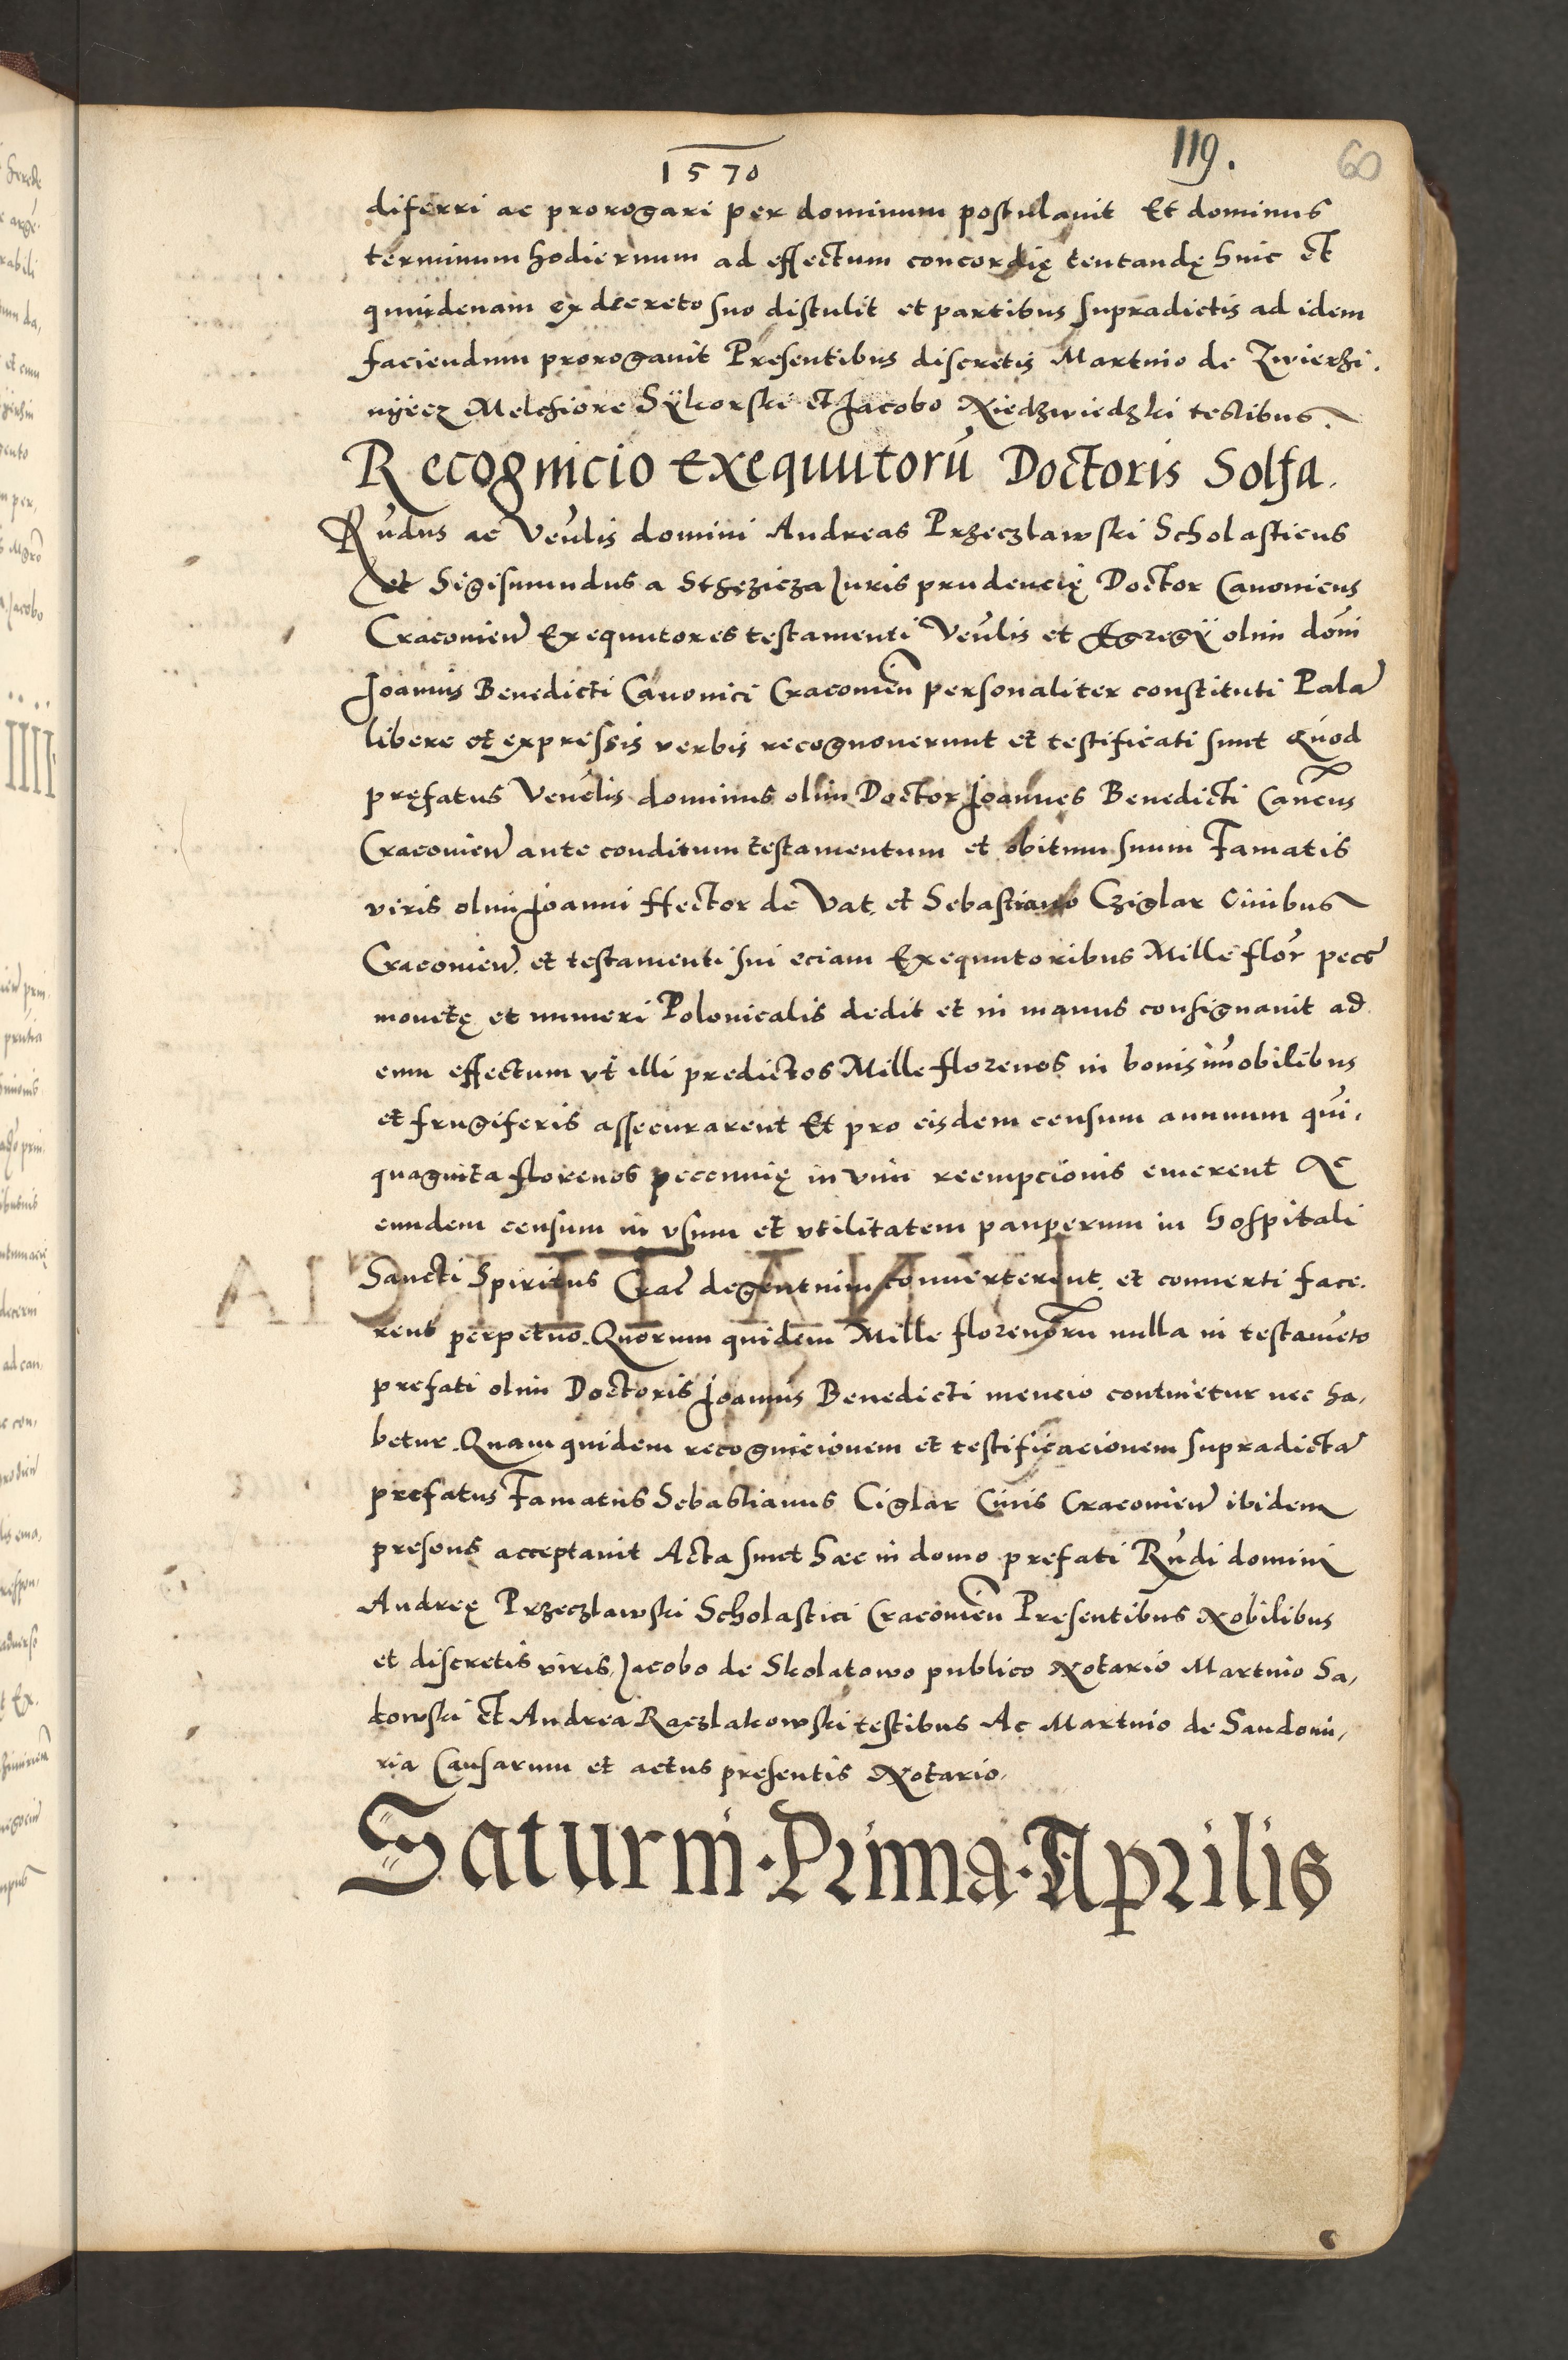 1570
119.
60
diferri ac prorogari per dominum postulauit Et dominus
terminum hodiernum ad effectum concordię tentandę hinc et
quindenam ex decreto suo distulit et partibus supradictis ad idem
faciendum prorogauit Presentibus discretis Martino de Zwierzi,
nyecz Melchiore Sÿkorski et Jacobo Niedzwiedzki testibus.
Recognicio exequutorũ Doctoris Solfa.
Rũdus ac Veũlis domini Andreas Przeczlawski Scholasticus
et Sigismundus a Sthęzicza Juris prudencię Doctor Canonicus
Cracovieñ Exequutores testamenti Veũlis et Egregÿ olim dõni
Joannis Benedicti Canonici Cracovieñ personaliter constituti Palã
libere et expressis verbis recognouerunt et testificati sunt Quod
pręfatus Venẽlis dominus olim Doctor Joannes Benedicti Canẽcus
Cracovieñ ante conditum testamentum et obitum suum Famatis
viris olim Joanni Hector de Vat. et Sebastiano Cziglar Ciuibus
Cracovieñ. et testamenti sui eciam Exequutoribus Mille flor̃ pecc̃
monetę et numeri Polonicalis dedit et in manus consignauit ad
eum effectum vt illi predictos Mille florenos in bonis im̃obilibus
et frugiferis assecurarent Et pro eisdem censum annuum qũi,
quaginta florenos peccunię in vim reempcionis emerent Ac
eundem censum in vsum et vtilitatem pauperum in hospitali
Sancti Spiritus Crac̃ degentium conuerterent. et conuerti face,
rent perpetuo. Quorum quidem Mille florenorũ nulla in testamẽto
prefati olim Doctoris Joannis Benedicti mencio continetur nec ha,
betur. Quam quidem recognicionem et testificacionem supradictã
prefatus Famatus Sebastianus Ciglar Ciuis Cracovieñ ibidem
presens acceptauit Acta sunt hæc in domo prefati Rũdi domini
Andreę Przeczlawski Scholastici Cracovieñ Presentibus Nobilibus
et discretis viris, Jacobo de Skolatowo publico Notario Martino Sa,
kowski et Andrea Raczlakowski testibus Ac Martino de Sandomi,
ria Causarum et actus presentis Notario.
Saturni · Prima · Aprilis